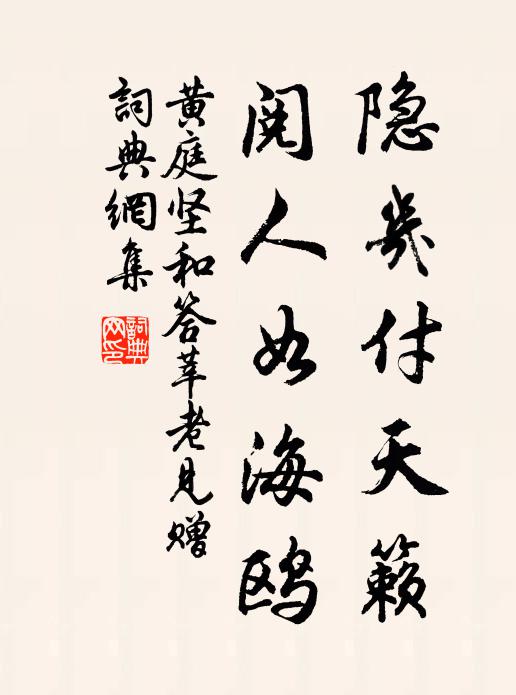 隐几付天籁
阅人如海鸥
黄庭坚和答莘老见赠
詞典網集
詞典网印